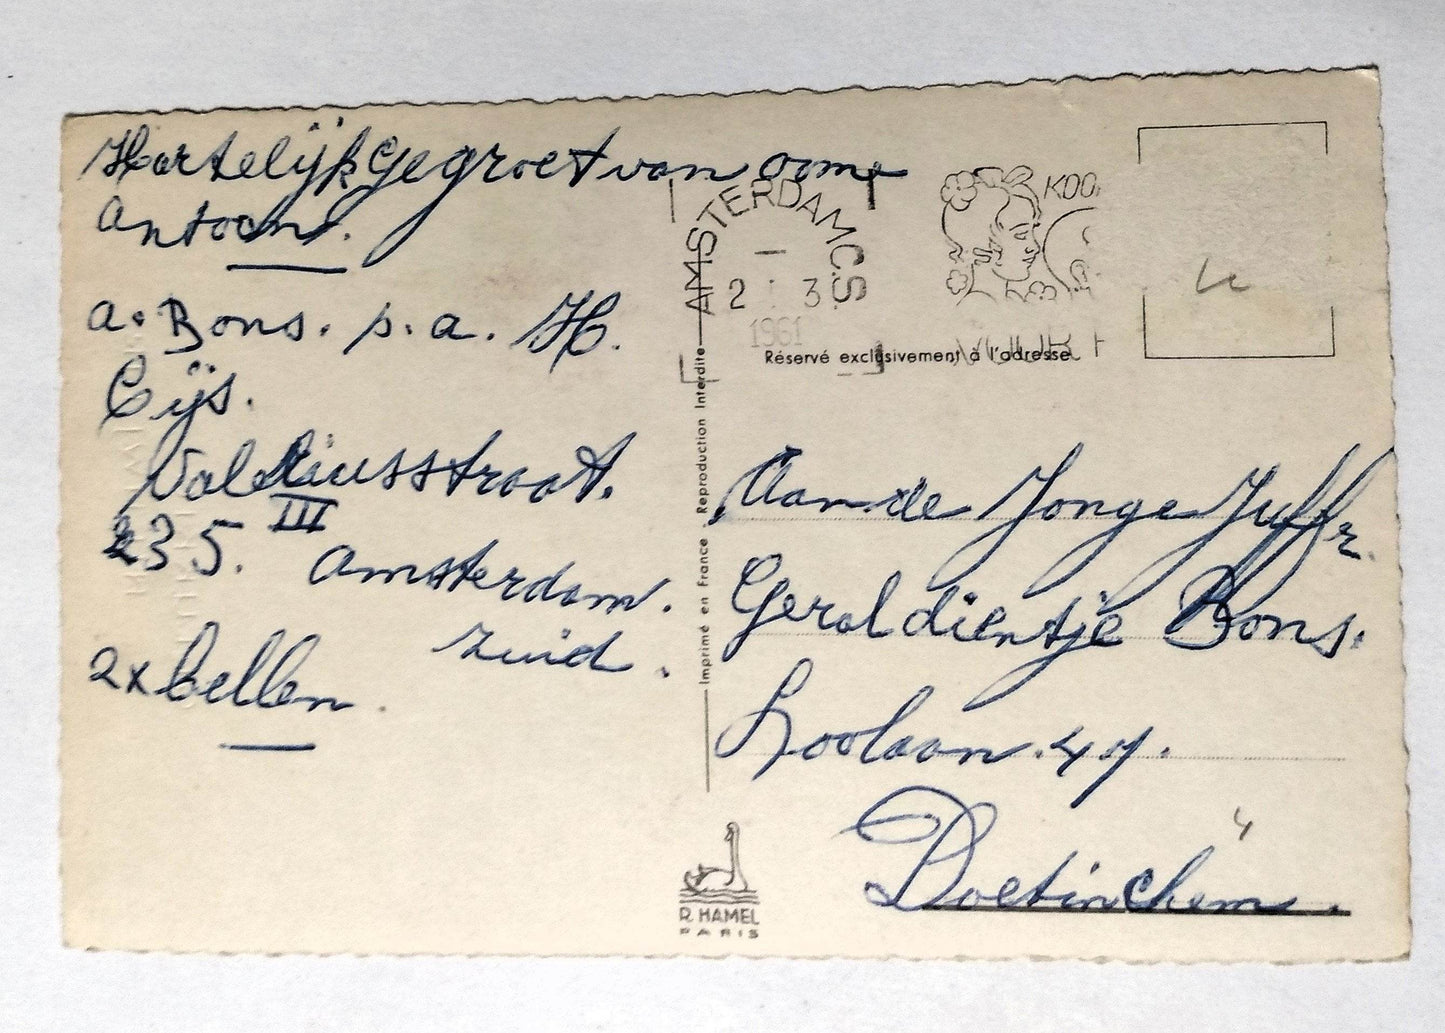 Hartelijk gegroet van oome
Antoon.
A. Bons. p.a. H.
Cijs.
Valeriusstraat.
235. III Amsterdam.
Zuid.
2x bellen.
AMSTERDAM C.S.
2 3
1961
KOO
VOOR
Réservé exclusivement à l'adresse
Imprimé en France. Reproduction Interdite
Aan de Jonge Juffr.
Geraldientje Bons.
Loolaan. 47.
Doetinchem.
4
R. HAMEL
PARIS